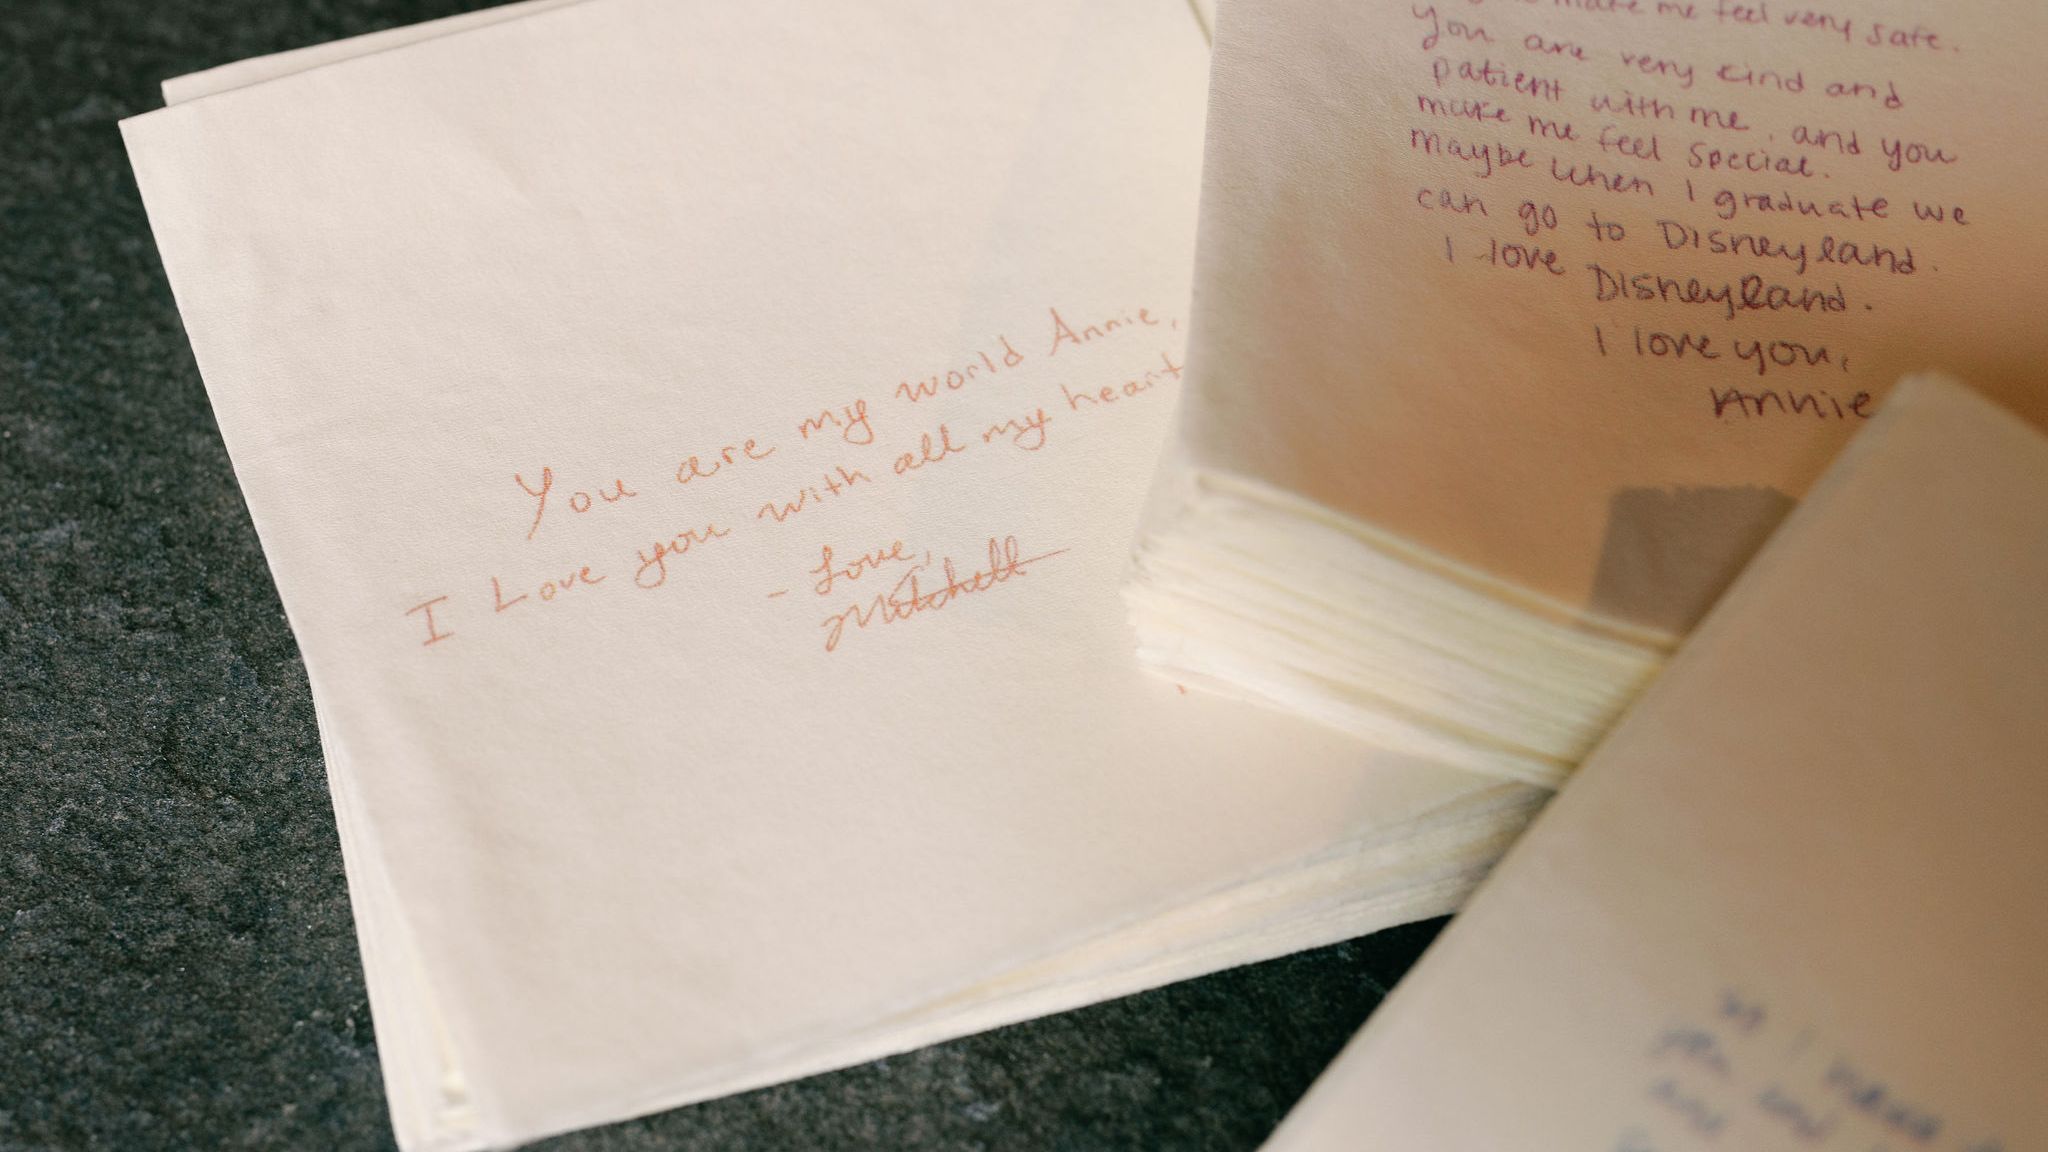 You are my world Annie,
I Love you with all my heart
- Love,
Mitchell
make me feel very safe.
You are very kind and
patient with me, and you
make me feel special.
maybe when I graduate we
can go to Disneyland.
I love Disneyland.
I love you,
Annie